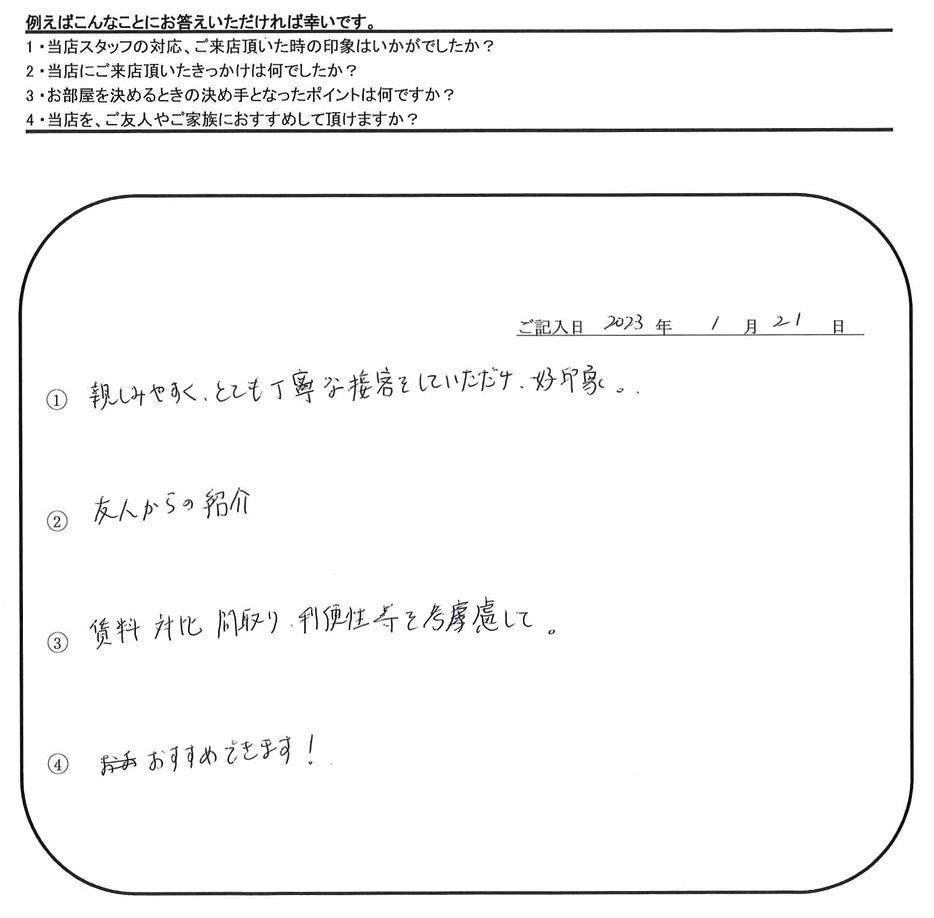 例えばこんなことにお答えいただければ幸いです。
1・当店スタッフの対応、ご来店頂いた時の印象はいかがでしたか?
2・当店にご来店頂いたきっかけは何でしたか?
3・お部屋を決めるときの決め手となったポイントは何ですか?
4・当店を、ご友人やご家族におすすめして頂けますか?
ご記入日 2023 年 1 月 21 日
① 親しみやすく、とても丁寧な接客をしていただけ、好印象。
② 友人からの紹介
③ 賃料 対比 間取り、利便性等を考慮して。
④ おすすめできます!